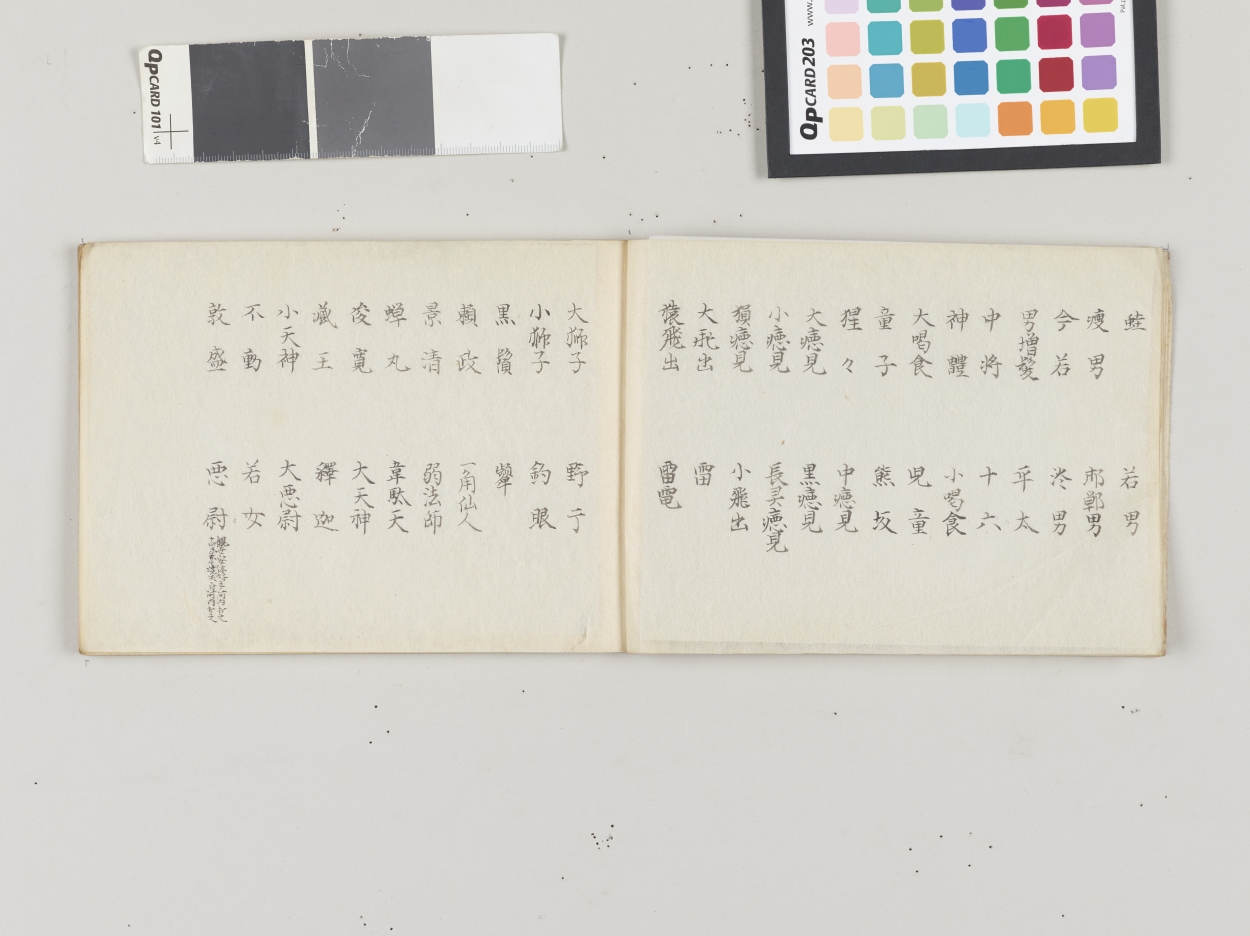 QpCARD 101 v4
QpCARD 203
www.
蛙
若男
痩男
邯鄲男
今若
泠男
男増髪
平太
中将
十六
神體
小喝食
大喝食
児童
童子
熊坂
猩々
中癋見
大癋見
黒癋見
小癋見
長灵癋見
猿癋見
小飛出
大飛出
雷
猿飛出
雷電
大獅子
野干
小獅子
釣眼
黒鬚
顰
頼政
一角仙人
景清
弱法師
蝉丸
韋駄天
俊寛
大天神
蔵王
釋迦
小天神
大悪尉
不動
若女
敦盛
悪尉